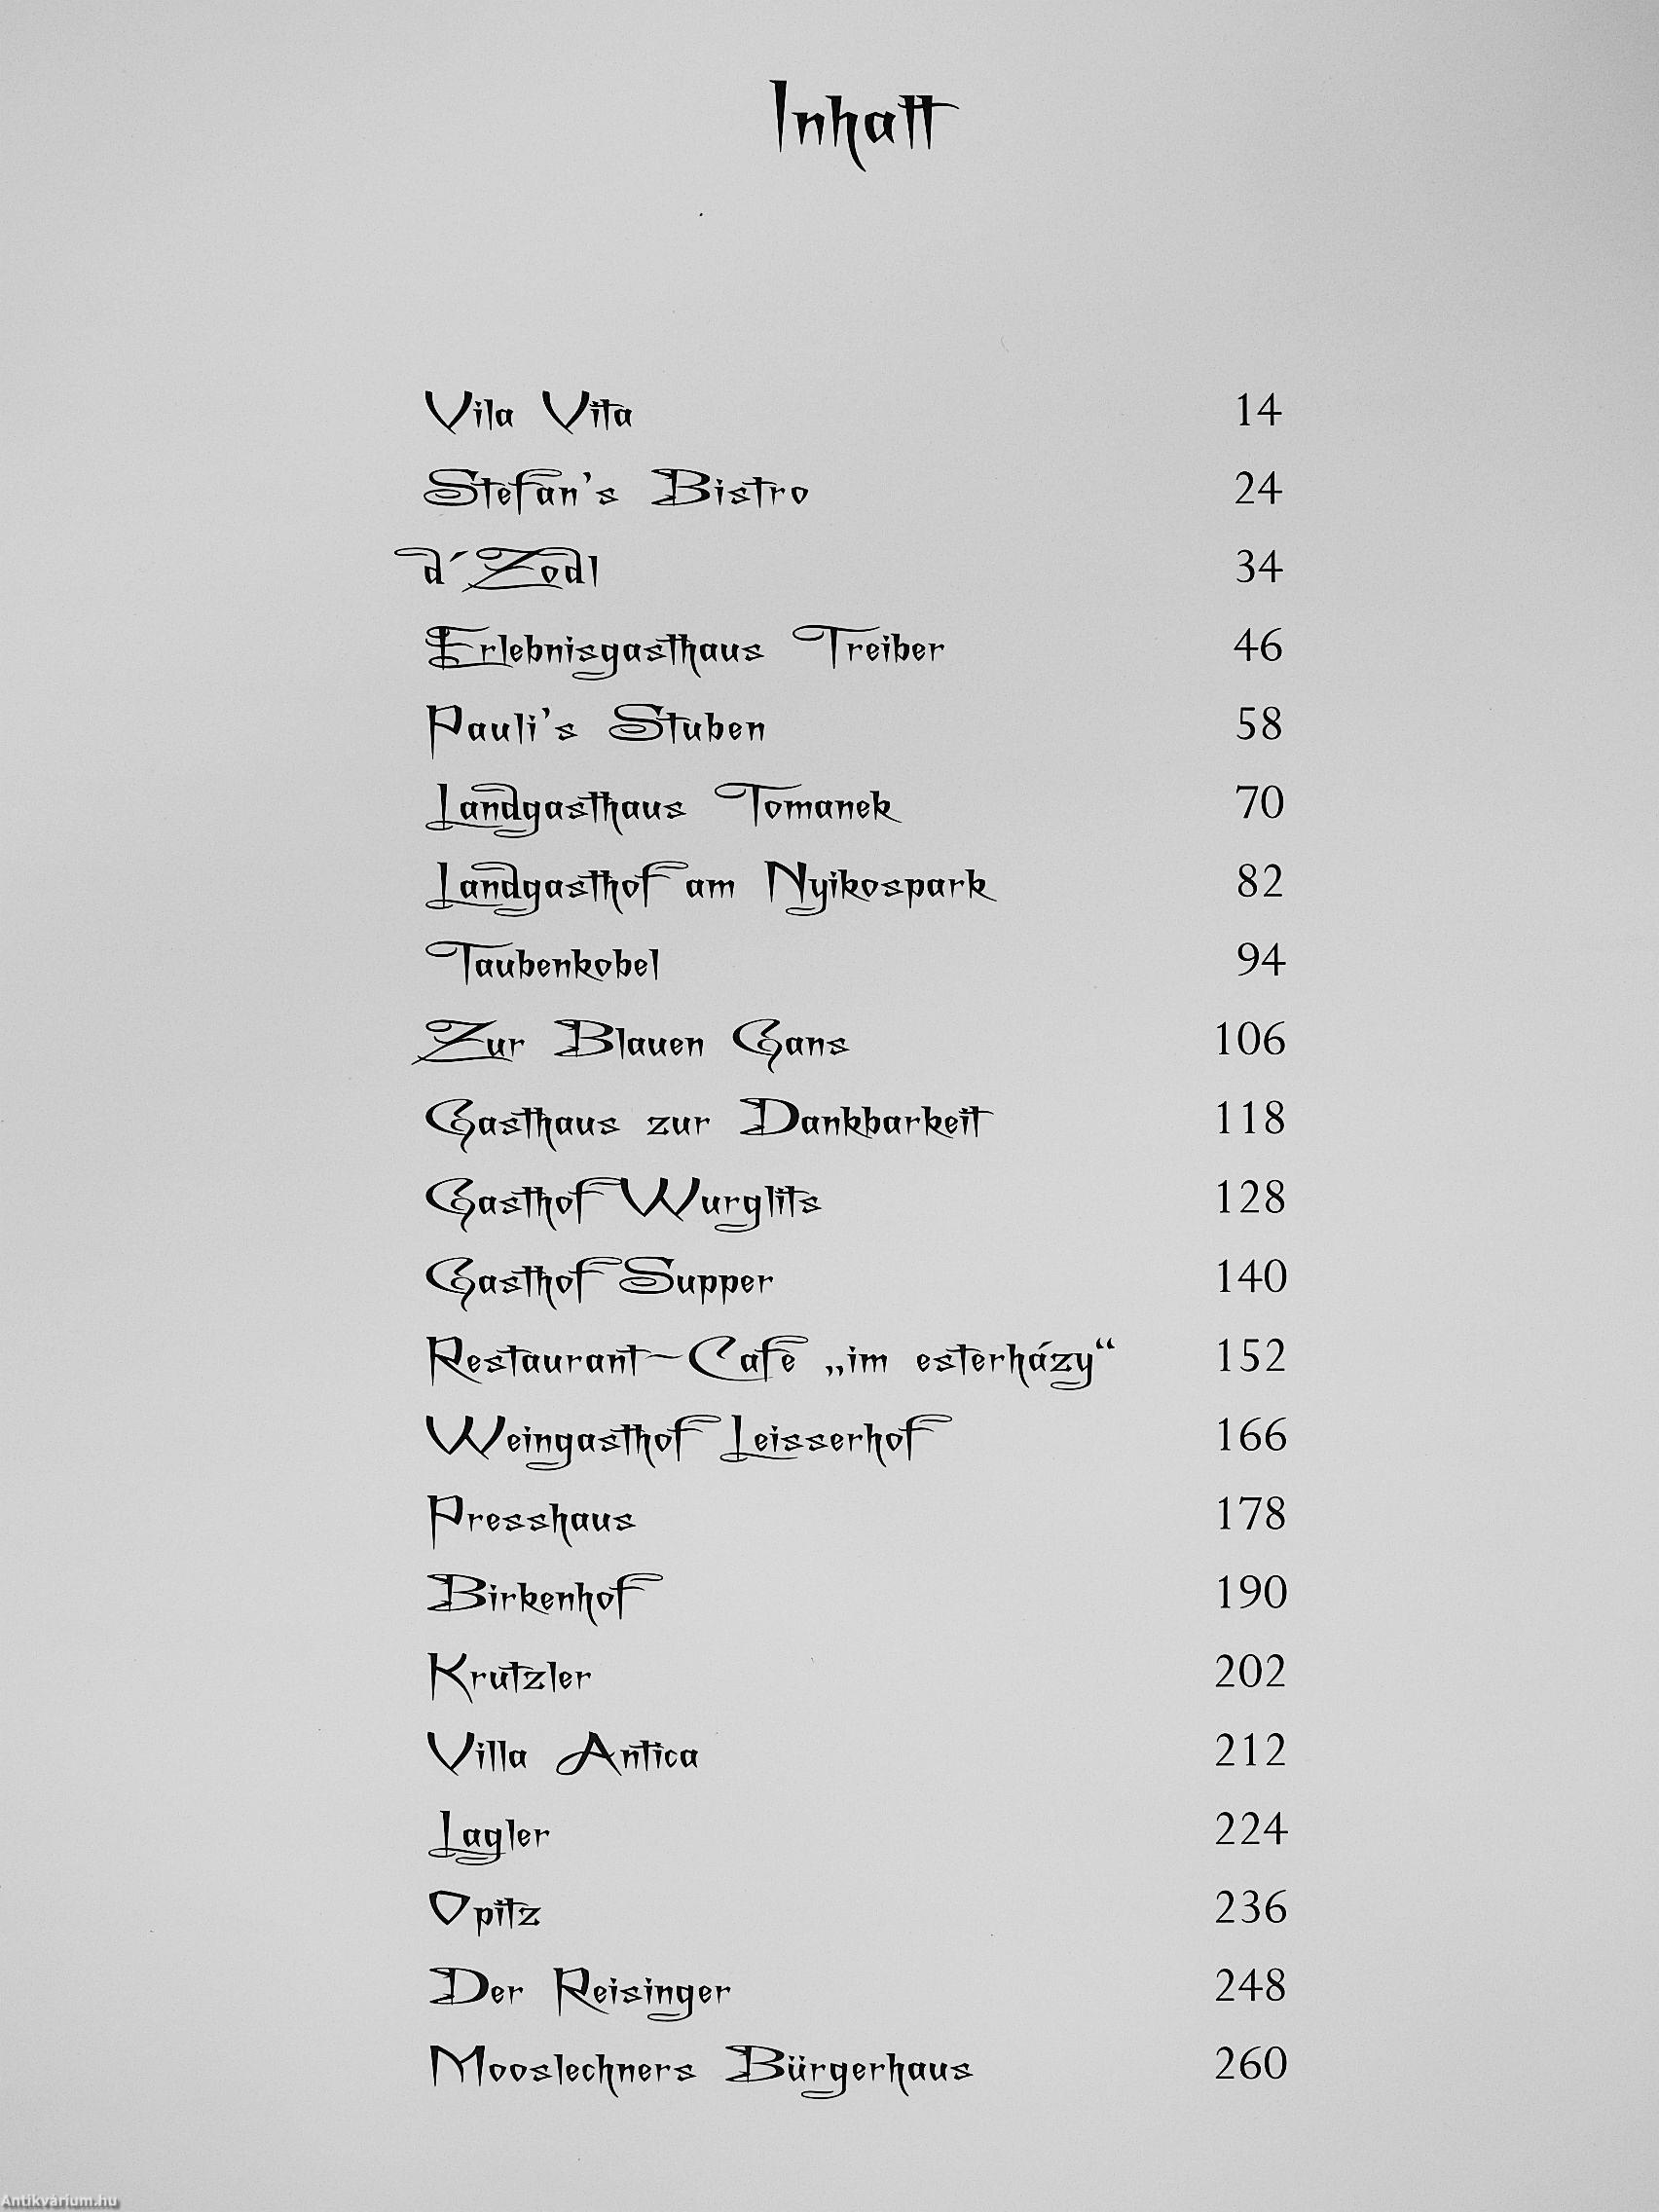 Inhalt
Vila Vita 14
Stefan's Bistro 24
d´Zodl 34
Erlebnisgasthaus Treiber 46
Pauli's Stuben 58
Landgasthaus Tomanek 70
Landgasthof am Nyikospark 82
Taubenkobel 94
Zur Blauen Gans 106
Gasthaus zur Dankbarkeit 118
Gasthof Wurglits 128
Gasthof Supper 140
Restaurant-Café „im esterházy“ 152
Weingasthof Leisserhof 166
Presshaus 178
Birkenhof 190
Krutzler 202
Villa Antica 212
Lagler 224
Opitz 236
Der Reisinger 248
Mooslechners Bürgerhaus 260
Antikvárium.hu